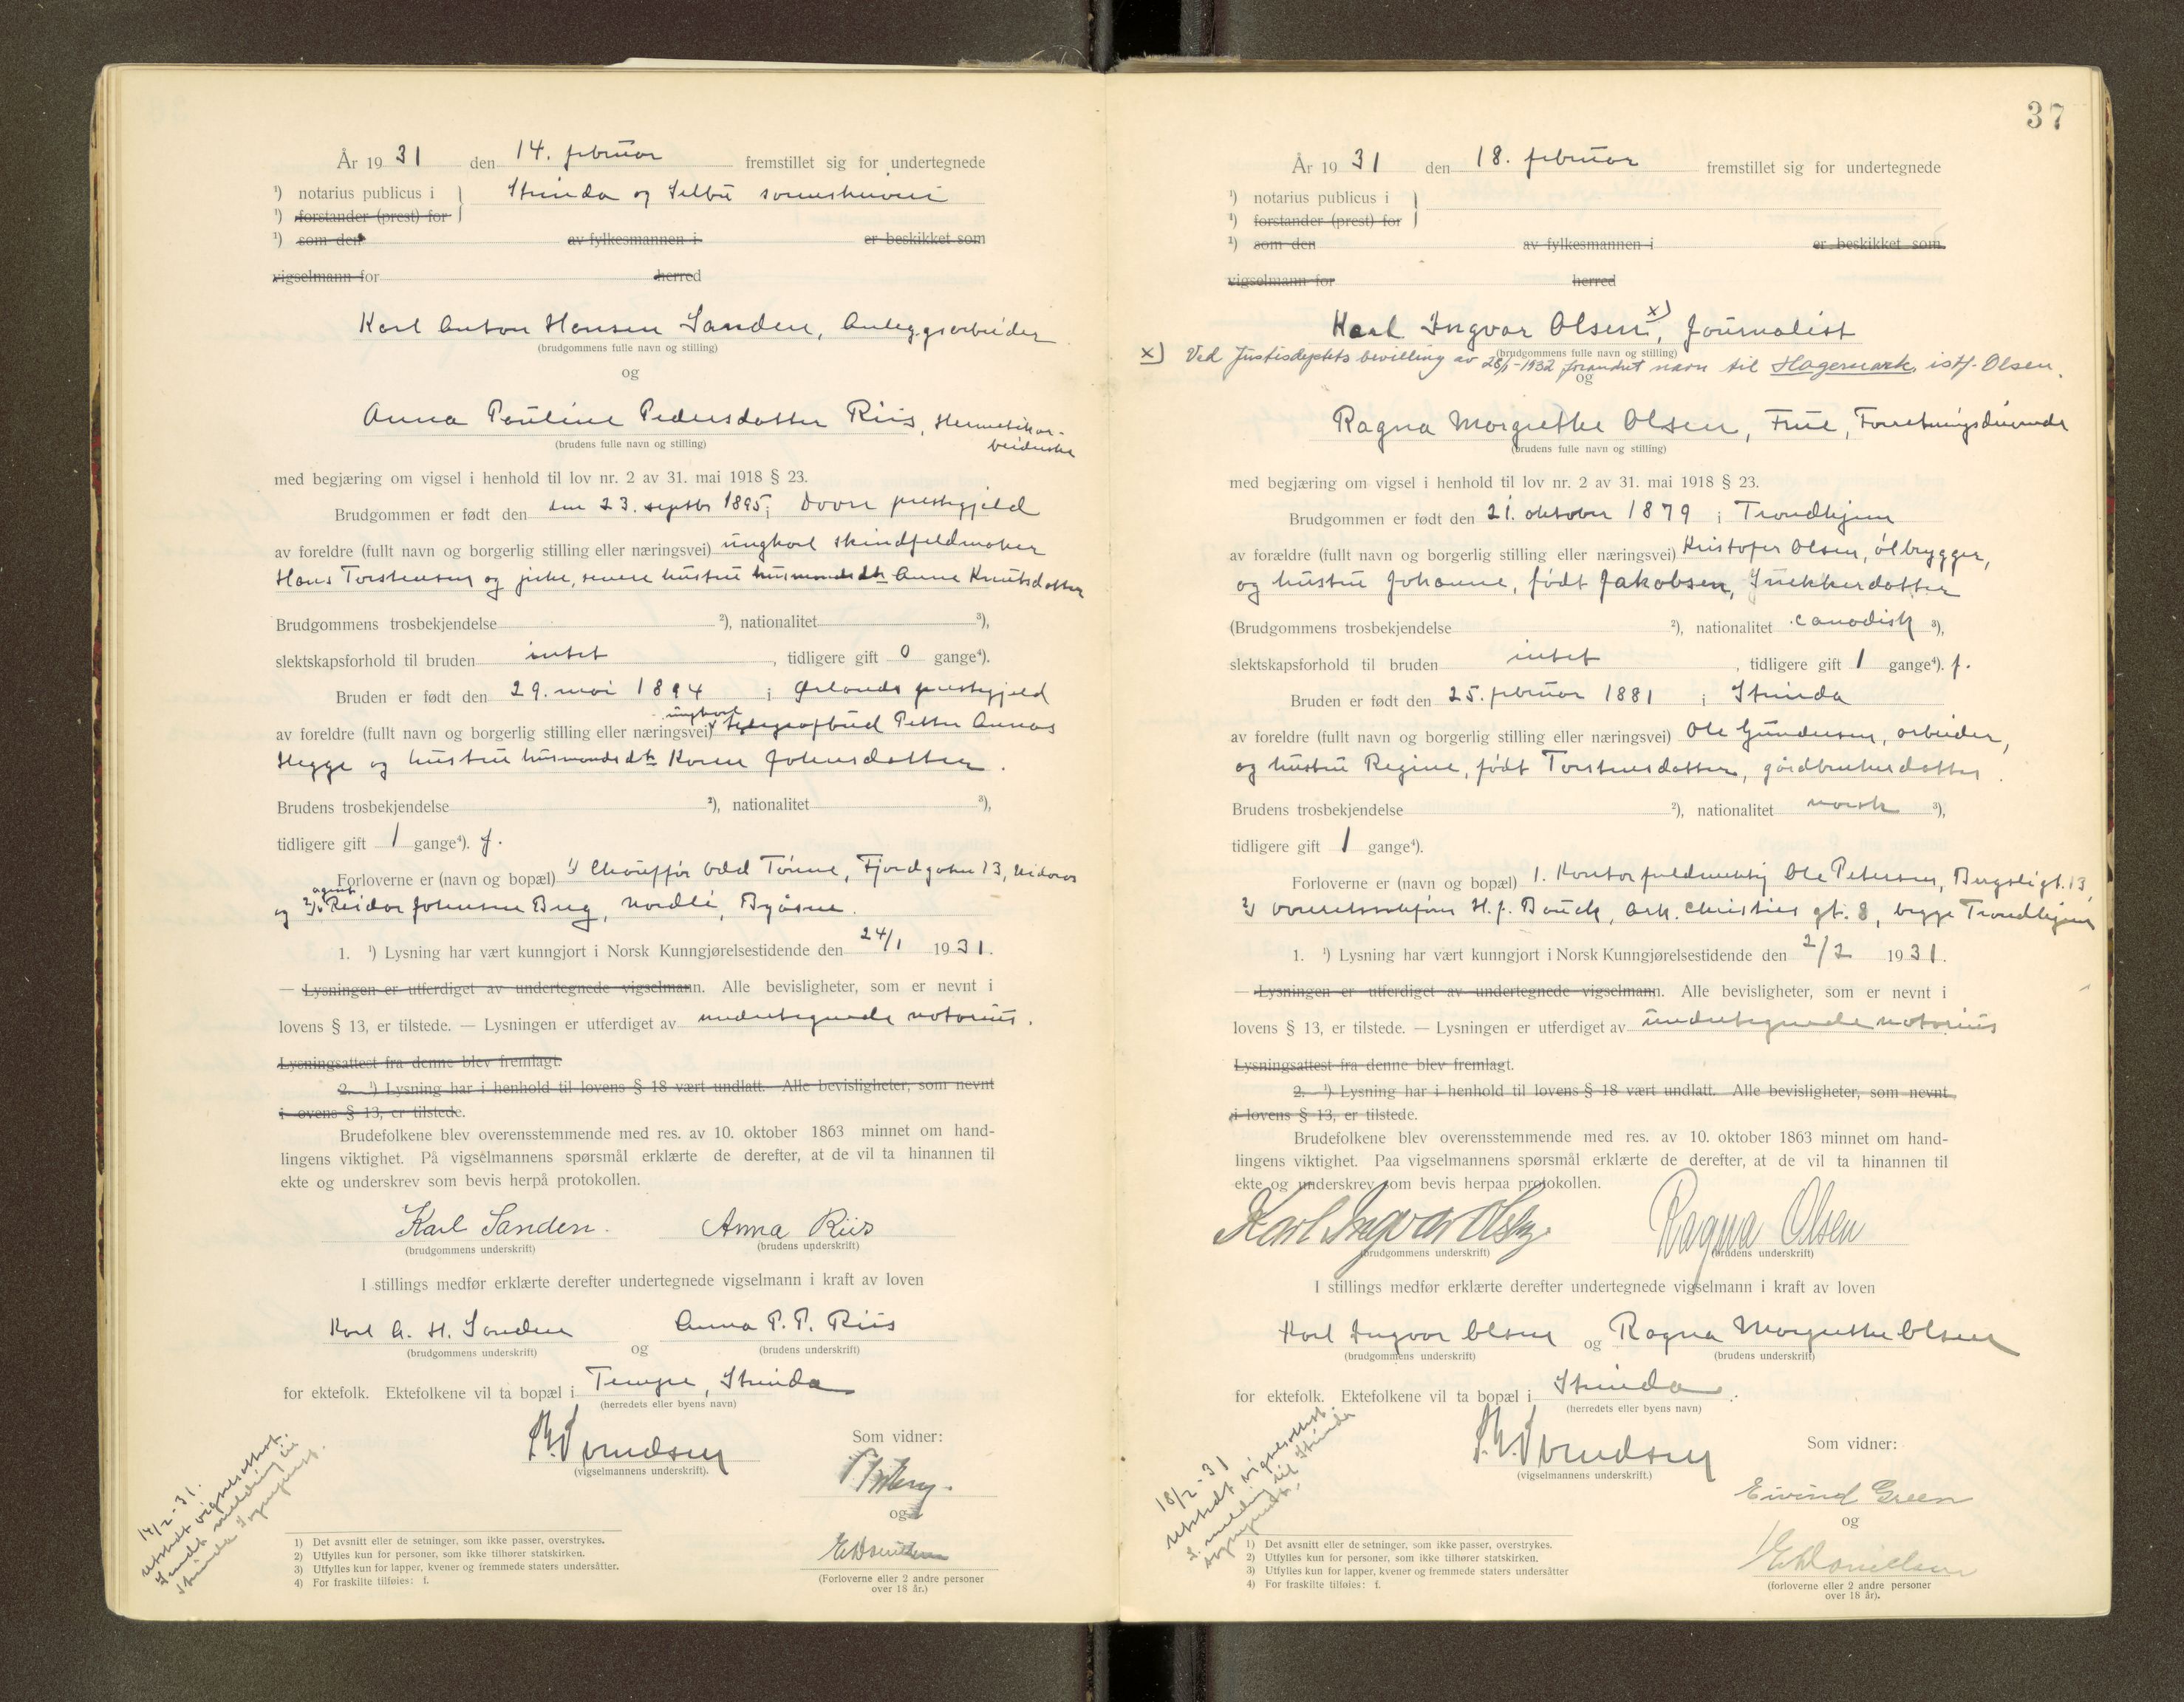 År 1931 den 14. februar fremstillet sig for undertegnede
¹) notarius publicus i } Strinda og Selbu sorenskriveri
¹) forstander (prest) for
¹) som den av fylkesmannen i er beskikket som
vigselmann for herred
Karl Anton Hansen Sanden, Anleggsarbeider
(brudgommens fulle navn og stilling)
og
Anna Pauline Pedersdatter Riis, Hermetikar-
beiderske
(brudens fulle navn og stilling)
med begjæring om vigsel i henhold til lov nr. 2 av 31. mai 1918 § 23.
Brudgommen er født den den 23. septbr 1895 i Dovre prestegjeld
av foreldre (fullt navn og borgerlig stilling eller næringsvei) ungkarl skindfeldmaker
Hans Torstensen og pike, senere hustru husmandsdtr Anne Knutsdatter
Brudgommens trosbekjendelse ²), nationalitet ³),
slektskapsforhold til bruden intet, tidligere gift 0 gange⁴).
Bruden er født den 29. mai 1894 i Ørlands prestegjeld
ungkarl
av foreldre (fullt navn og borgerlig stilling eller næringsvei) Petter Annas
Hegge og hustru husmandsdtr Karen Johnsdatter.
Brudens trosbekjendelse ²), nationalitet ³),
tidligere gift 1 gange⁴). f.
Forloverne er (navn og bopæl) 1) Chauffør Odd Tørum, Fjordgaten 13, Nidaros
agent
og 2) Reidar Johansen Berg, Nordli, Byåsen.
1. ¹) Lysning har vært kunngjort i Norsk Kunngjørelsestidende den 24/1 1931.
— Lysningen er utferdiget av undertegnede vigselmann. Alle bevisligheter, som er nevnt i
lovens § 13, er tilstede. — Lysningen er utferdiget av undertegnede notarius.
Lysningsattest fra denne blev fremlagt.
2. ¹) Lysning har i henhold til lovens § 18 vært undlatt. Alle bevisligheter, som nevnt
i lovens § 13, er tilstede.
Brudefolkene blev overensstemmende med res. av 10. oktober 1863 minnet om hand-
lingens viktighet. På vigselmannens spørsmål erklærte de derefter, at de vil ta hinannen til
ekte og underskrev som bevis herpå protokollen.
Karl Sanden. Anna Riis
(brudgommens underskrift) (brudens underskrift)
I stillings medfør erklærte derefter undertegnede vigselmann i kraft av loven
Karl A. H. Sanden og Anna P. P. Riis
(brudgommens underskrift) (brudens underskrift)
for ektefolk. Ektefolkene vil ta bopæl i Tempe, Strinda
(herredets eller byens navn)
(vigselmannens underskrift).
Som vidner:
og
(Forloverne eller 2 andre personer
over 18 år.)
14/2-31.
Utstedt vigselsattest.
Sendt melding til
Strinda sogneprest.
1) Det avsnitt eller de setninger, som ikke passer, overstrykes.
2) Utfylles kun for personer, som ikke tilhører statskirken.
3) Utfylles kun for lapper, kvener og fremmede staters undersåtter.
4) For fraskilte tilføies: f.
37
År 1931 den 18. februar fremstillet sig for undertegnede
¹) notarius publicus i }
¹) forstander (prest) for
¹) som den av fylkesmannen i er beskikket som
vigselmann for herred
Karl Ingvar Olsen x), Journalist
(brudgommens fulle navn og stilling)
x) Ved Justisdeptets bevilling av 28/1-1932 forandret navn til Hagemark, istf. Olsen.
og
Ragna Margrethe Olsen, Frue, Forretningsdrivende
(brudens fulle navn og stilling)
med begjæring om vigsel i henhold til lov nr. 2 av 31. mai 1918 § 23.
Brudgommen er født den 21. oktober 1879 i Trondhjem
av forældre (fullt navn og borgerlig stilling eller næringsvei) Kristofer Olsen, ølbrygger,
og hustru Johanne, født Jakobsen, Snekkerdatter
(Brudgommens trosbekjendelse ²), nationalitet canadisk ³),
slektskapsforhold til bruden intet, tidligere gift 1 gange⁴). f.
Bruden er født den 25. februar 1881 i Strinda
av foreldre (fullt navn og borgerlig stilling eller næringsvei) Ole Gundersen, arbeider,
og hustru Regine, født Torstensdatter, gårdbrukerdatter.
Brudens trosbekjendelse ²), nationalitet norsk ³),
tidligere gift 1 gange⁴).
Forloverne er (navn og bopæl) 1. Kontorfuldmektig Ole Petersen, Bergsligt. 13,
2) overretssakfører H. J. Bauck, Ark. Christies gt. 8, begge Trondhjem
1. ¹) Lysning har vært kunngjort i Norsk Kunngjørelsestidende den 2/2 1931.
— Lysningen er utferdiget av undertegnede vigselmann. Alle bevisligheter, som er nevnt i
lovens § 13, er tilstede. — Lysningen er utferdiget av undertegnede notarius
Lysningsattest fra denne blev fremlagt.
2. ¹) Lysning har i henhold til lovens § 18 vært undlatt. Alle bevisligheter, som nevnt
i lovens § 13, er tilstede.
Brudefolkene blev overensstemmende med res. av 10. oktober 1863 minnet om hand-
lingens viktighet. Paa vigselmannens spørsmål erklærte de derefter, at de vil ta hinannen til
ekte og underskrev som bevis herpaa protokollen.
Karl Ingvar Olsen Ragna Olsen
(brudgommens underskrift) (brudens underskrift)
I stillings medfør erklærte derefter undertegnede vigselmann i kraft av loven
Karl Ingvar Olsen og Ragna Margrethe Olsen
(brudgommens underskrift) (brudens underskrift)
for ektefolk. Ektefolkene vil ta bopæl i Strinda.
(herredets eller byens navn)
(vigselmannens underskrift.)
Som vidner:
Eivind Green
og
E. Danielsen
(forloverne eller 2 andre personer
over 18 år).
18/2-31
Utstedt vigselsattest.
S. melding til Strinda
sogneprest.
1) Det avsnitt eller de setninger, som ikke passer, overstrykes.
2) Utfylles kun for personer, som ikke tilhører statskirken.
3) Utfylles kun for lapper, kvener og fremmede staters undersåtter
4) For fraskilte tilføies: f.